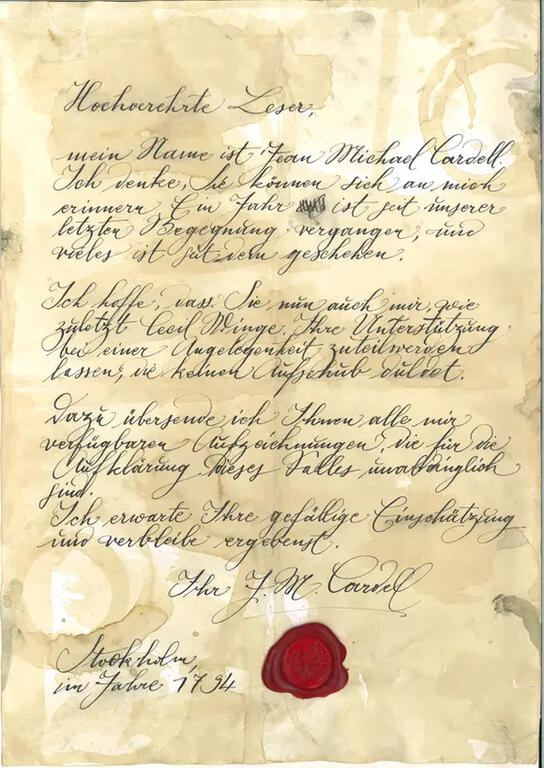 Hochverehrte Leser,
mein Name ist Jean Michael Cardell.
Ich denke, Sie können sich an mich
erinnern. Ein Jahr ist seit unserer
letzten Begegnung vergangen, und
vieles ist seit dem geschehen.
Ich hoffe, dass Sie nun auch mir, wie
zuletzt Cecil Winge, Ihre Unterstützung
bei einer Angelegenheit zuteilwerden
lassen, die keinen Aufschub duldet.
Dazu übersende ich Ihnen alle mir
verfügbaren Aufzeichnungen, die für die
Aufklärung dieses Falles unabdinglich
sind.
Ich erwarte Ihre gefällige Einschätzung
und verbleibe ergebenst.
Ihr J. M. Cardell
Stockholm,
im Jahre 1794